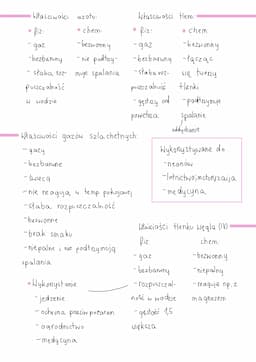 Właściwości azotu:
• fiz: • chem
- gaz - bezwonny
- bezbarwny - nie podtrzy-
- słaba roz- muje spalania
puszczalność
w wodzie
Właściwości tlenu
• fiz: • chem
- gaz - bezwonny
- bezbarwny - łącząc
- słaba roz- się tworzy
puszczalność tlenki
- gęstszy od - podtrzymuje
powietrza spalanie
oddychanie
Właściwości gazów szlachetnych:
- gazy
- bezbarwne
- świecą
- nie reagują w temp pokojowej
- słaba rozpuszczalność
- bezwonne
- brak smaku
- niepalne i nie podtrzymują
spalania
Wykorzystywane do
- neonów
- lotnictwo
- medycyna
• Wykorzystanie
- jedzenie
- ochrona przeciwpożarom
- ogrodnictwo
- medycyna
Właściwości tlenku węgla (IV)
fiz: chem
- gaz - bezwonny
- bezbarwny - niepalny
- rozpuszczal- - reaguje np. z
ność w wodzie magnezem
- gęstość 1,5
większa